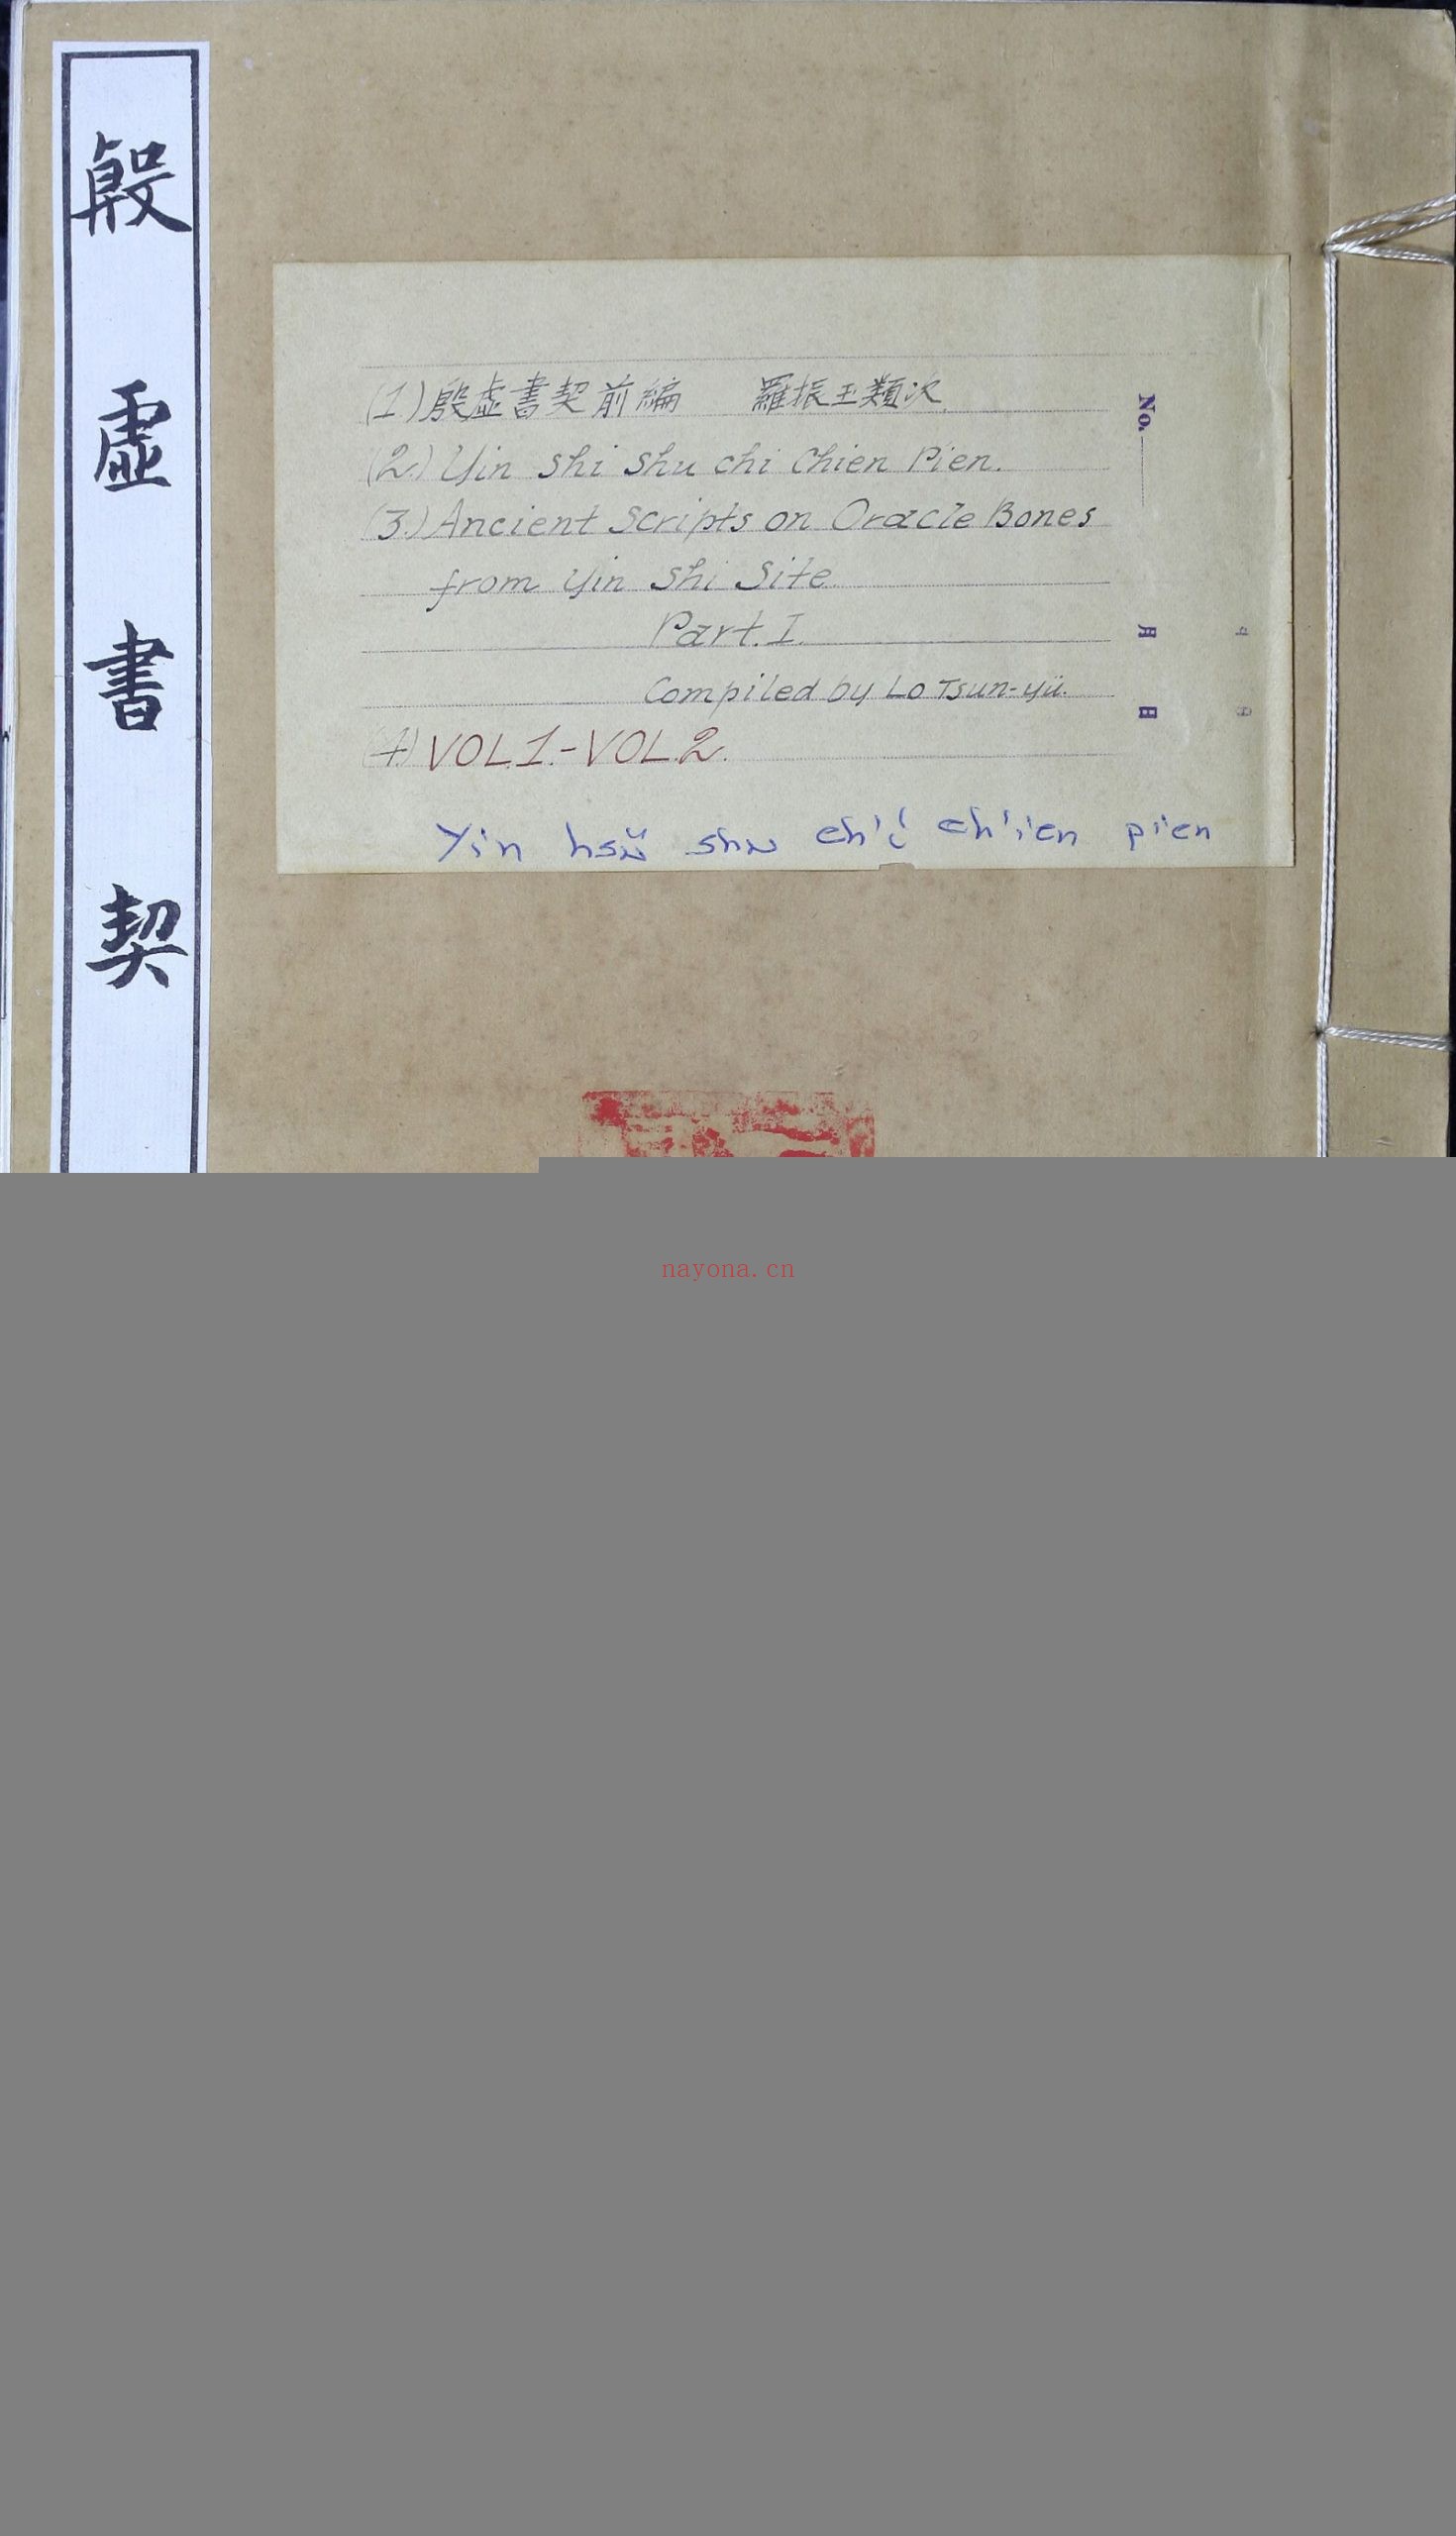 殷虛書契
(1.)殷虛書契前編 羅振玉類次.
(2.) Yin Shi Shu chi Chien Pien.
(3.) Ancient Scripts on Oracle Bones
from Yin Shi Site
Part. I.
Compiled by Lo Tsun-yü.
(4.) VOL.1.-VOL.2.
Yin hsü shu ch'i ch'ien pien
No.
月
日
nayona.cn